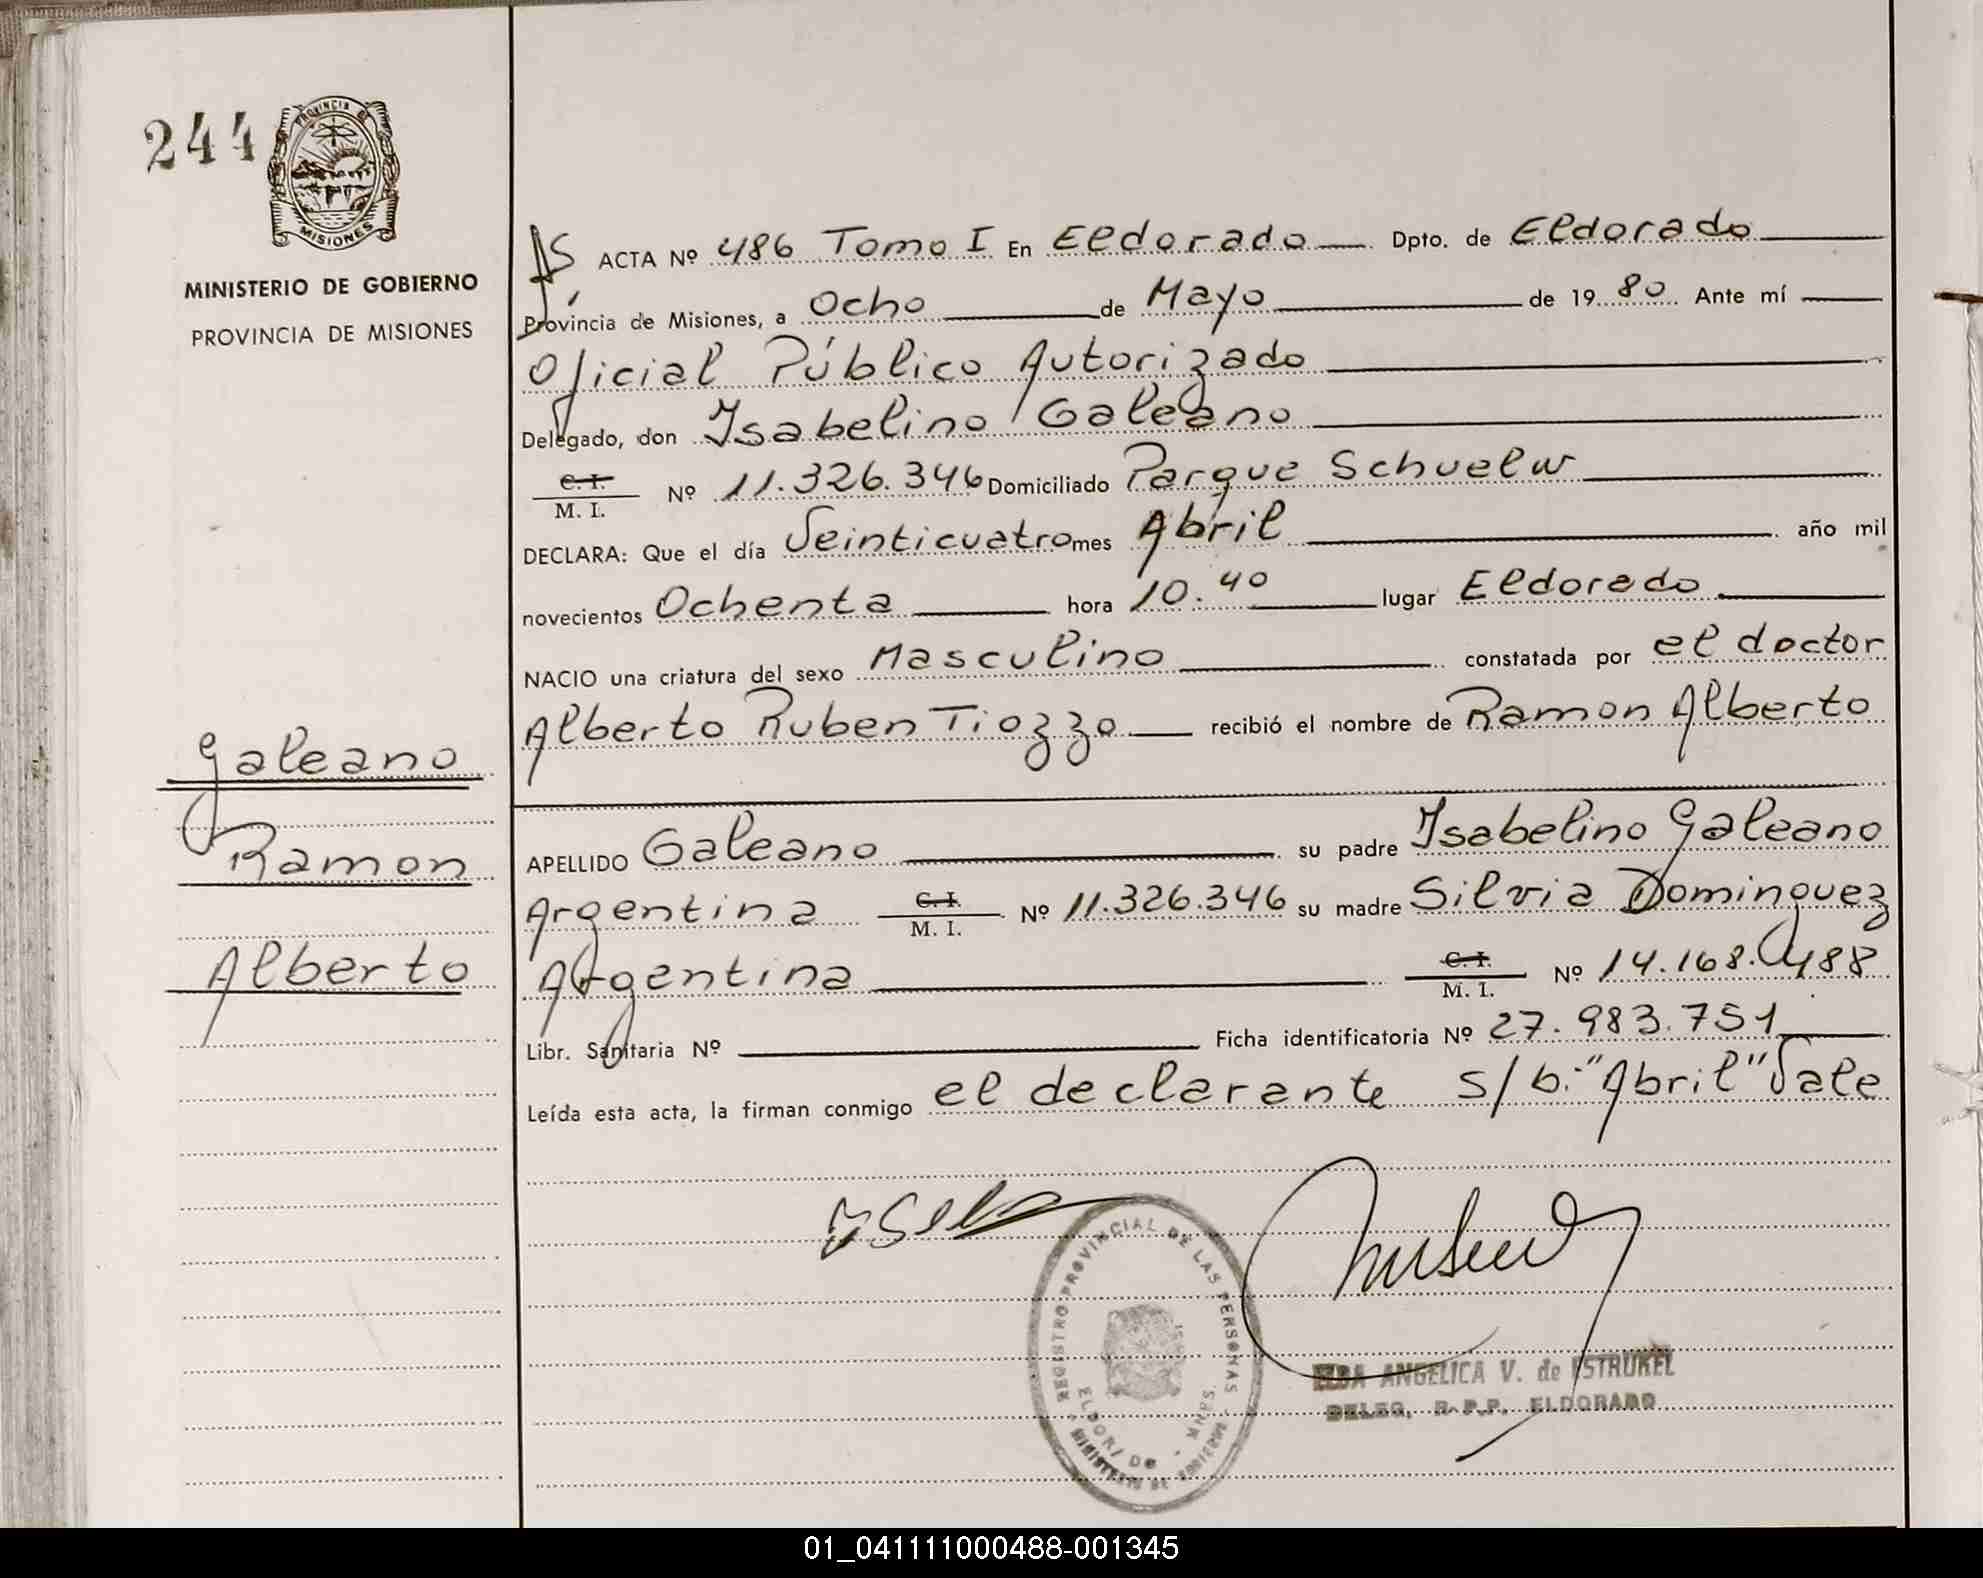 244
PROVINCIA DE
MISIONES
MINISTERIO DE GOBIERNO
PROVINCIA DE MISIONES
Galeano
Ramon
Alberto
ACTA Nº 486 Tomo I En Eldorado Dpto. de Eldorado
Provincia de Misiones, a Ocho de Mayo de 1980 Ante mí
Oficial Público Autorizado
Delegado, don Isabelino Galeano
C. I.
M. I. Nº 11.326.346 Domiciliado Parque Schuelw
DECLARA: Que el día Veinticuatro mes Abril año mil
novecientos Ochenta hora 10.40 lugar Eldorado
NACIO una criatura del sexo Masculino constatada por el doctor
Alberto Ruben Tiozzo recibió el nombre de Ramon Alberto
APELLIDO Galeano su padre Isabelino Galeano
Argentina C. I. M. I. Nº 11.326.346 su madre Silvia Dominguez
Argentina C. I. M. I. Nº 14.168.488
Libr. Sanitaria Nº Ficha identificatoria Nº 27.983.751
Leída esta acta, la firman conmigo el declarante s/b:"Abril" Vale
REGISTRO PROVINCIAL DE LAS PERSONAS
ELDORADO - MNES.
MINISTERIO DE GOBIERNO
ELBA ANGELICA V. de ESTRUKEL
DELEG. R.P.P. ELDORADO
01_041111000488-001345